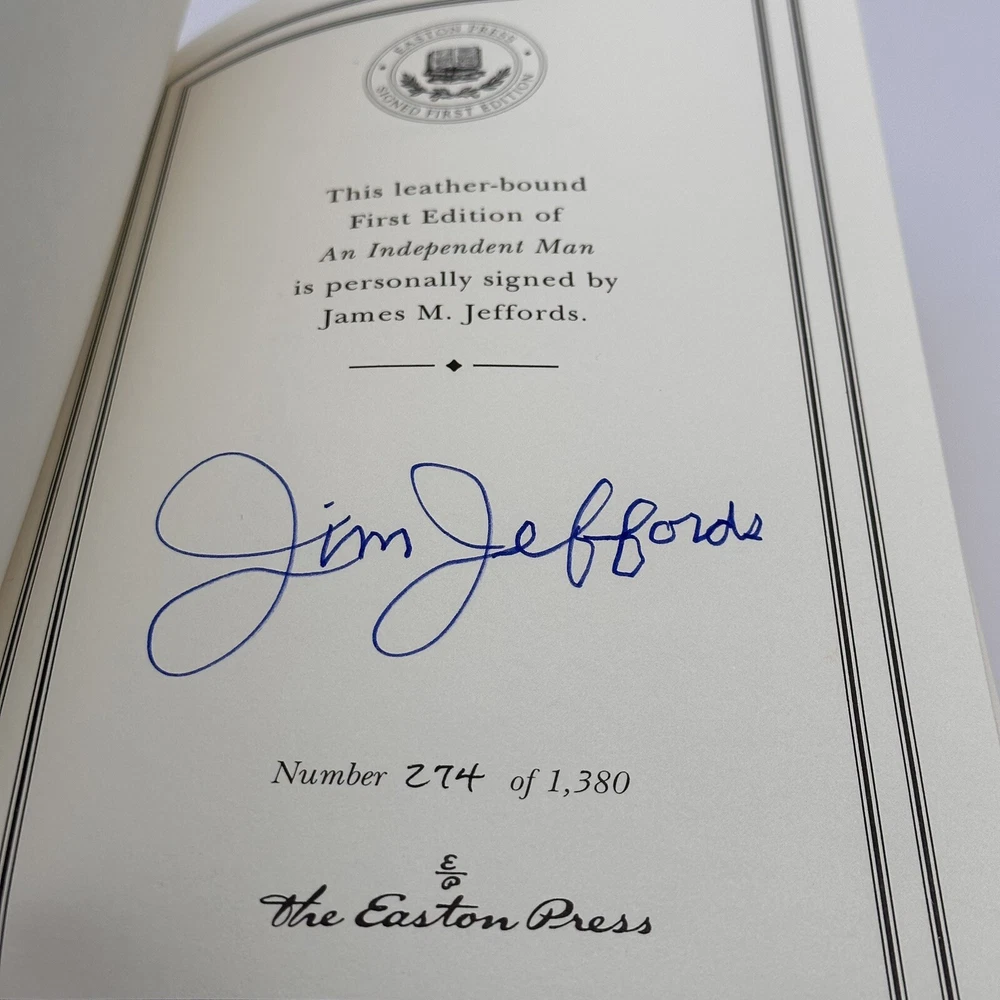 EASTON PRESS
SIGNED FIRST EDITION
This leather-bound
First Edition of
An Independent Man
is personally signed by
James M. Jeffords.
Jim Jeffords
Number 274 of 1,380
E
P
The Easton Press